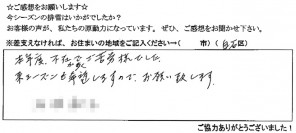 ☆ご感想をお願いします☆
今シーズンの排雪はいかがでしたか?
お客様の声が、私たちの原動力になっています。ぜひ、ご感想をお聞かせ下さい。
※差支えなければ、お住まいの地域をご記入ください→( 市)( 白石区)
本年度、不在でご苦労様でした。
来シーズンも希望しますので、お願い致します。
ご協力ありがとうございました!